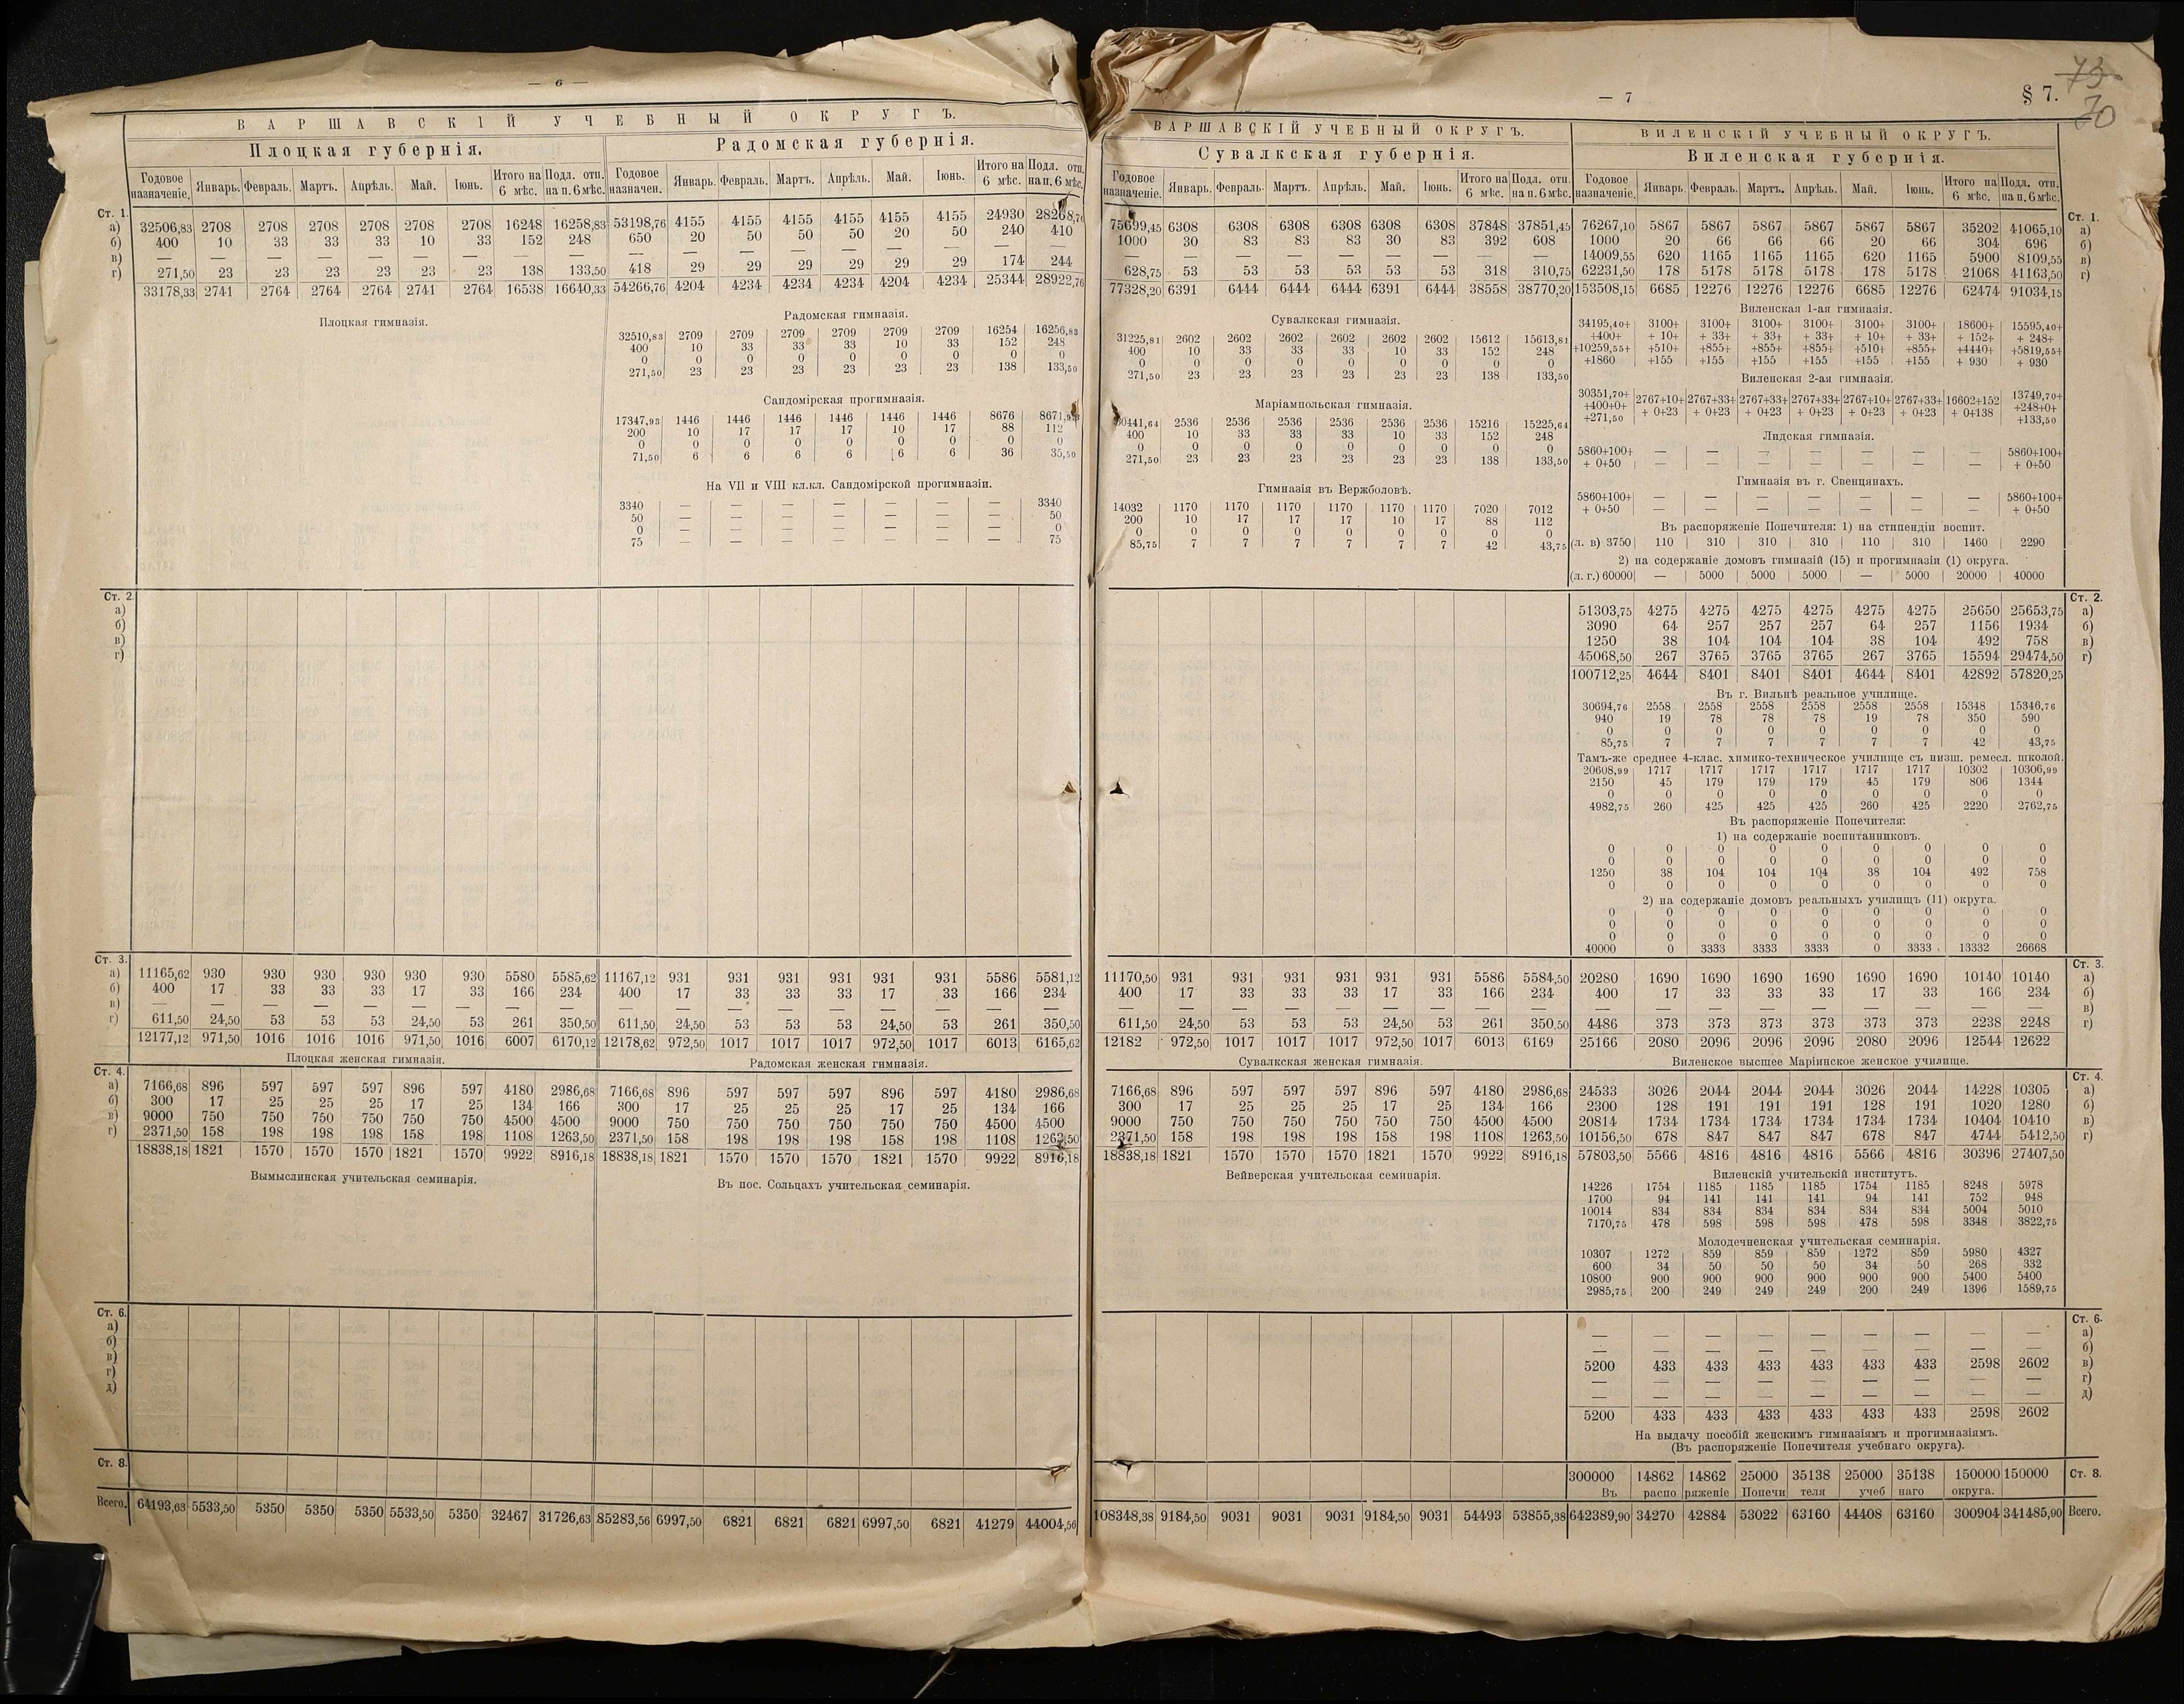 — 6 —
ВАРШАВСКІЙ УЧЕБНЫЙ ОКРУГЪ.
Плоцкая губернія. Радомская губернія.
Годовое назначеніе. Январь. Февраль. Мартъ. Апрѣль. Май. Іюнь. Итого на 6 мѣс. Подл. отп. на п. 6 мѣс. Годовое назначен. Январь. Февраль. Мартъ. Апрѣль. Май. Іюнь. Итого на 6 мѣс. Подл. отп. на п. 6 мѣс.
Ст. 1.
а) 32506,83 2708 2708 2708 2708 2708 2708 16248 16258,83 53198,76 4155 4155 4155 4155 4155 4155 24930 28268,76
б) 400 10 33 33 33 10 33 152 248 650 20 50 50 50 20 50 240 410
в) — — — — — — — — — — — — — — — — — —
г) 271,50 23 23 23 23 23 23 138 133,50 418 29 29 29 29 29 29 174 244
33178,33 2741 2764 2764 2764 2741 2764 16538 16640,33 54266,76 4204 4234 4234 4234 4204 4234 25344 28922,76
Плоцкая гимназія. Радомская гимназія.
32510,83 2709 2709 2709 2709 2709 2709 16254 16256,83
400 10 33 33 33 10 33 152 248
0 0 0 0 0 0 0 0 0
271,50 23 23 23 23 23 23 138 133,50
Сандомірская прогимназія.
17347,93 1446 1446 1446 1446 1446 1446 8676 8671,93
200 10 17 17 17 10 17 88 112
0 0 0 0 0 0 0 0 0
71,50 6 6 6 6 6 6 36 35,50
На VII и VIII кл.кл. Сандомірской прогимназіи.
3340 — — — — — — — 3340
50 — — — — — — — 50
0 — — — — — — — 0
75 — — — — — — — 75
Ст. 2.
а)
б)
в)
г)
Ст. 3.
а) 11165,62 930 930 930 930 930 930 5580 5585,62 11167,12 931 931 931 931 931 931 5586 5581,12
б) 400 17 33 33 33 17 33 166 234 400 17 33 33 33 17 33 166 234
в) — — — — — — — — — — — — — — — — — —
г) 611,50 24,50 53 53 53 24,50 53 261 350,50 611,50 24,50 53 53 53 24,50 53 261 350,50
12177,12 971,50 1016 1016 1016 971,50 1016 6007 6170,12 12178,62 972,50 1017 1017 1017 972,50 1017 6013 6165,62
Плоцкая женская гимназія. Радомская женская гимназія.
Ст. 4.
а) 7166,68 896 597 597 597 896 597 4180 2986,68 7166,68 896 597 597 597 896 597 4180 2986,68
б) 300 17 25 25 25 17 25 134 166 300 17 25 25 25 17 25 134 166
в) 9000 750 750 750 750 750 750 4500 4500 9000 750 750 750 750 750 750 4500 4500
г) 2371,50 158 198 198 198 158 198 1108 1263,50 2371,50 158 198 198 198 158 198 1108 1263,50
18838,18 1821 1570 1570 1570 1821 1570 9922 8916,18 18838,18 1821 1570 1570 1570 1821 1570 9922 8916,18
Вымыслинская учительская семинарія. Въ пос. Сольцахъ учительская семинарія.
Ст. 6.
а)
б)
в)
г)
д)
Ст. 8.
Всего. 64193,63 5533,50 5350 5350 5350 5533,50 5350 32467 31726,63 85283,56 6997,50 6821 6821 6821 6997,50 6821 41279 44004,56
— 7
§ 7.
73
70
ВАРШАВСКІЙ УЧЕБНЫЙ ОКРУГЪ. ВИЛЕНСКІЙ УЧЕБНЫЙ ОКРУГЪ.
Сувалкская губернія. Виленская губернія.
Годовое назначеніе. Январь. Февраль. Мартъ. Апрѣль. Май. Іюнь. Итого на 6 мѣс. Подл. отп. на п. 6 мѣс. Годовое назначеніе. Январь. Февраль. Мартъ. Апрѣль. Май. Іюнь. Итого на 6 мѣс. Подл. отп. на п. 6 мѣс.
Ст. 1.
75699,45 6308 6308 6308 6308 6308 6308 37848 37851,45 76267,10 5867 5867 5867 5867 5867 5867 35202 41065,10 а)
1000 30 83 83 83 30 83 392 608 1000 20 66 66 66 20 66 304 696 б)
— — — — — — — — — 14009,55 620 1165 1165 1165 620 1165 5900 8109,55 в)
628,75 53 53 53 53 53 53 318 310,75 62231,50 178 5178 5178 5178 178 5178 21068 41163,50 г)
77328,20 6391 6444 6444 6444 6391 6444 38558 38770,20 153508,15 6685 12276 12276 12276 6685 12276 62474 91034,15
Сувалкская гимназія.
31225,81 2602 2602 2602 2602 2602 2602 15612 15613,81
400 10 33 33 33 10 33 152 248
0 0 0 0 0 0 0 0 0
271,50 23 23 23 23 23 23 138 133,50
Маріампольская гимназія.
30441,64 2536 2536 2536 2536 2536 2536 15216 15225,64
400 10 33 33 33 10 33 152 248
0 0 0 0 0 0 0 0 0
271,50 23 23 23 23 23 23 138 133,50
Гимназія въ Вержболовѣ.
14032 1170 1170 1170 1170 1170 1170 7020 7012
200 10 17 17 17 10 17 88 112
0 0 0 0 0 0 0 0 0
85,75 7 7 7 7 7 7 42 43,75
Виленская 1-ая гимназія.
34195,40+ 3100+ 3100+ 3100+ 3100+ 3100+ 3100+ 18600+ 15595,40+
+400+ + 10+ + 33+ + 33+ + 33+ + 10+ + 33+ + 152+ + 248+
+10259,55+ +510+ +855+ +855+ +855+ +510+ +855+ +4440+ +5819,55+
+1860 +155 +155 +155 +155 +155 +155 + 930 + 930
Виленская 2-ая гимназія.
30351,70+ 2767+10+ 2767+33+ 2767+33+ 2767+33+ 2767+10+ 2767+33+ 16602+152 13749,70+
+400+0+ + 0+23 + 0+23 + 0+23 + 0+23 + 0+23 + 0+23 + 0+138 +248+0+
+271,50 +133,50
Лидская гимназія.
5860+100+ — — — — — — — 5860+100+
+ 0+50 — — — — — — — + 0+50
Гимназія въ г. Свенцянахъ.
5860+100+ — — — — — — — 5860+100+
+ 0+50 — — — — — — — + 0+50
Въ распоряженіе Попечителя: 1) на стипендіи воспит.
(л. в) 3750 110 310 310 310 110 310 1460 2290
2) на содержаніе домовъ гимназій (15) и прогимназіи (1) округа.
(л. г.) 60000 — 5000 5000 5000 — 5000 20000 40000
Ст. 2.
51303,75 4275 4275 4275 4275 4275 4275 25650 25653,75 а)
3090 64 257 257 257 64 257 1156 1934 б)
1250 38 104 104 104 38 104 492 758 в)
45068,50 267 3765 3765 3765 267 3765 15594 29474,50 г)
100712,25 4644 8401 8401 8401 4644 8401 42892 57820,25
Въ г. Вильнѣ реальное училище.
30694,76 2558 2558 2558 2558 2558 2558 15348 15346,76
940 19 78 78 78 19 78 350 590
0 0 0 0 0 0 0 0 0
85,75 7 7 7 7 7 7 42 43,75
Тамъ-же среднее 4-клас. химико-техническое училище съ низш. ремесл. школой.
20608,99 1717 1717 1717 1717 1717 1717 10302 10306,99
2150 45 179 179 179 45 179 806 1344
0 0 0 0 0 0 0 0 0
4982,75 260 425 425 425 260 425 2220 2762,75
Въ распоряженіе Попечителя:
1) на содержаніе воспитанниковъ.
0 0 0 0 0 0 0 0 0
0 0 0 0 0 0 0 0 0
1250 38 104 104 104 38 104 492 758
0 0 0 0 0 0 0 0 0
2) на содержаніе домовъ реальныхъ училищъ (11) округа.
0 0 0 0 0 0 0 0 0
0 0 0 0 0 0 0 0 0
0 0 0 0 0 0 0 0 0
40000 0 3333 3333 3333 0 3333 13332 26668
Ст. 3.
11170,50 931 931 931 931 931 931 5586 5584,50 20280 1690 1690 1690 1690 1690 1690 10140 10140 а)
400 17 33 33 33 17 33 166 234 400 17 33 33 33 17 33 166 234 б)
— — — — — — — — — — — — — — — — — — в)
611,50 24,50 53 53 53 24,50 53 261 350,50 4486 373 373 373 373 373 373 2238 2248 г)
12182 972,50 1017 1017 1017 972,50 1017 6013 6169 25166 2080 2096 2096 2096 2080 2096 12544 12622
Сувалкская женская гимназія. Виленское высшее Маріинское женское училище.
Ст. 4.
7166,68 896 597 597 597 896 597 4180 2986,68 24533 3026 2044 2044 2044 3026 2044 14228 10305 а)
300 17 25 25 25 17 25 134 166 2300 128 191 191 191 128 191 1020 1280 б)
9000 750 750 750 750 750 750 4500 4500 20814 1734 1734 1734 1734 1734 1734 10404 10410 в)
2371,50 158 198 198 198 158 198 1108 1263,50 10156,50 678 847 847 847 678 847 4744 5412,50 г)
18838,18 1821 1570 1570 1570 1821 1570 9922 8916,18 57803,50 5566 4816 4816 4816 5566 4816 30396 27407,50
Вейверская учительская семинарія. Виленскій учительскій институтъ.
14226 1754 1185 1185 1185 1754 1185 8248 5978
1700 94 141 141 141 94 141 752 948
10014 834 834 834 834 834 834 5004 5010
7170,75 478 598 598 598 478 598 3348 3822,75
Молодечненская учительская семинарія.
10307 1272 859 859 859 1272 859 5980 4327
600 34 50 50 50 34 50 268 332
10800 900 900 900 900 900 900 5400 5400
2985,75 200 249 249 249 200 249 1396 1589,75
Ст. 6.
— — — — — — — — — а)
— — — — — — — — — б)
5200 433 433 433 433 433 433 2598 2602 в)
— — — — — — — — — г)
— — — — — — — — — д)
5200 433 433 433 433 433 433 2598 2602
На выдачу пособій женскимъ гимназіямъ и прогимназіямъ.
(Въ распоряженіе Попечителя учебнаго округа).
300000 14862 14862 25000 35138 25000 35138 150000 150000 Ст. 8.
Въ распо ряженіе Попечи теля учеб наго округа.
108348,38 9184,50 9031 9031 9031 9184,50 9031 54493 53855,38 642389,90 34270 42884 53022 63160 44408 63160 300904 341485,90 Всего.